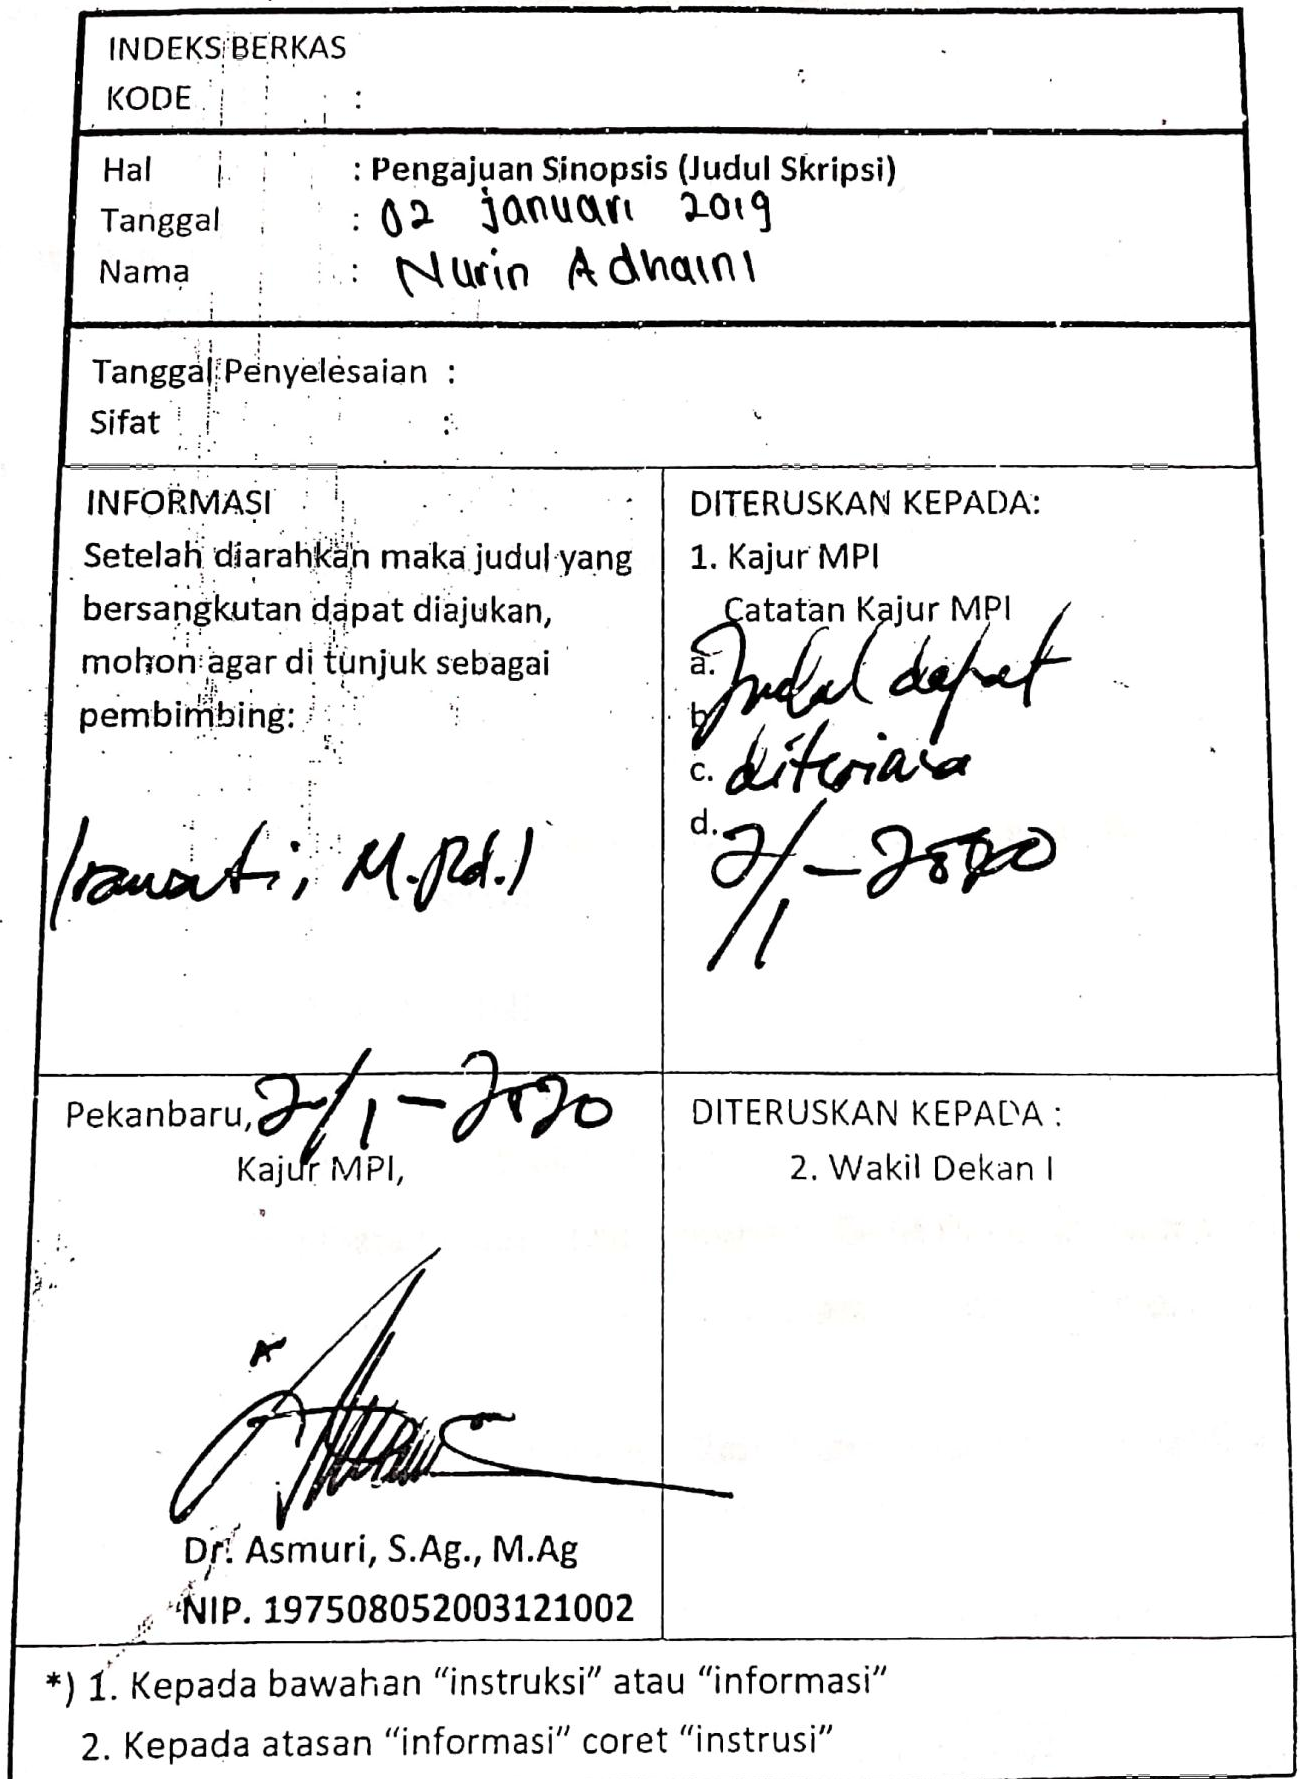 INDEKS BERKAS
KODE :
Hal : Pengajuan Sinopsis (Judul Skripsi)
Tanggal : 02 januari 2019
Nama : Nurin Adhaini
Tanggal Penyelesaian :
Sifat :
INFORMASI
Setelah diarahkan maka judul yang
bersangkutan dapat diajukan,
mohon agar di tunjuk sebagai
pembimbing:
Irawati, M.Pd.I
DITERUSKAN KEPADA:
1. Kajur MPI
Catatan Kajur MPI
a. Judul dapat
b
c. diterima
d. 2/1-2020
Pekanbaru, 2/1-2020
Kajur MPI,
Dr. Asmuri, S.Ag., M.Ag
NIP. 197508052003121002
DITERUSKAN KEPADA :
2. Wakil Dekan I
*) 1. Kepada bawahan “instruksi” atau “informasi”
2. Kepada atasan “informasi” coret “instrusi”